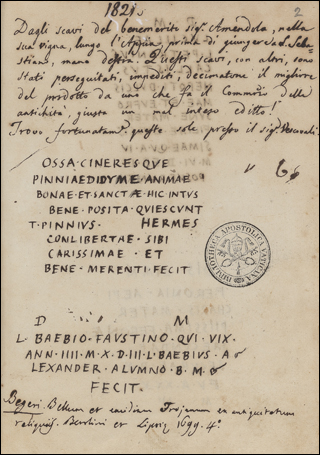 1821.
2
Dagli scavi del benemerito sig. Amendola, nella
sua vigna, lungo l'Appia, prima di giungere a S. Seba-
stiano, mano destra. Questi scavi, con altri, sono
stati perseguitati, impediti, decimatone il migliore
del prodotto da uno che fa il commercio delle
antichità, giusta un mal inteso editto!
Trovo fortunatam. queste sole presso il sig. Pascoali.
OSSA·CINERESQVE
PINNIAEDIDYME ANIMAE
BONAE·ET·SANCTÆ·HIC·INTVS
BENE·POSITA·QVIESCVNT
T·PINNIVS· HERMES
CONLIBERTAE·SIBI
CARISSIMAE·ET
BENE·MERENTI·FECIT
BIBLIOTHECA APOSTOLICA VATICANA
D M
L·BAEBIO·FAVSTINO·QVI·VIX·
ANN·IIII·M·X·D·III·L·BAEBIVS·A
LEXANDER·ALVMNO·B·M·
FECIT·
Begeri Bellum et excidium Trojanum ex antiquitatum
reliquiis. Berolini et Lipsiæ 1699. 4°.